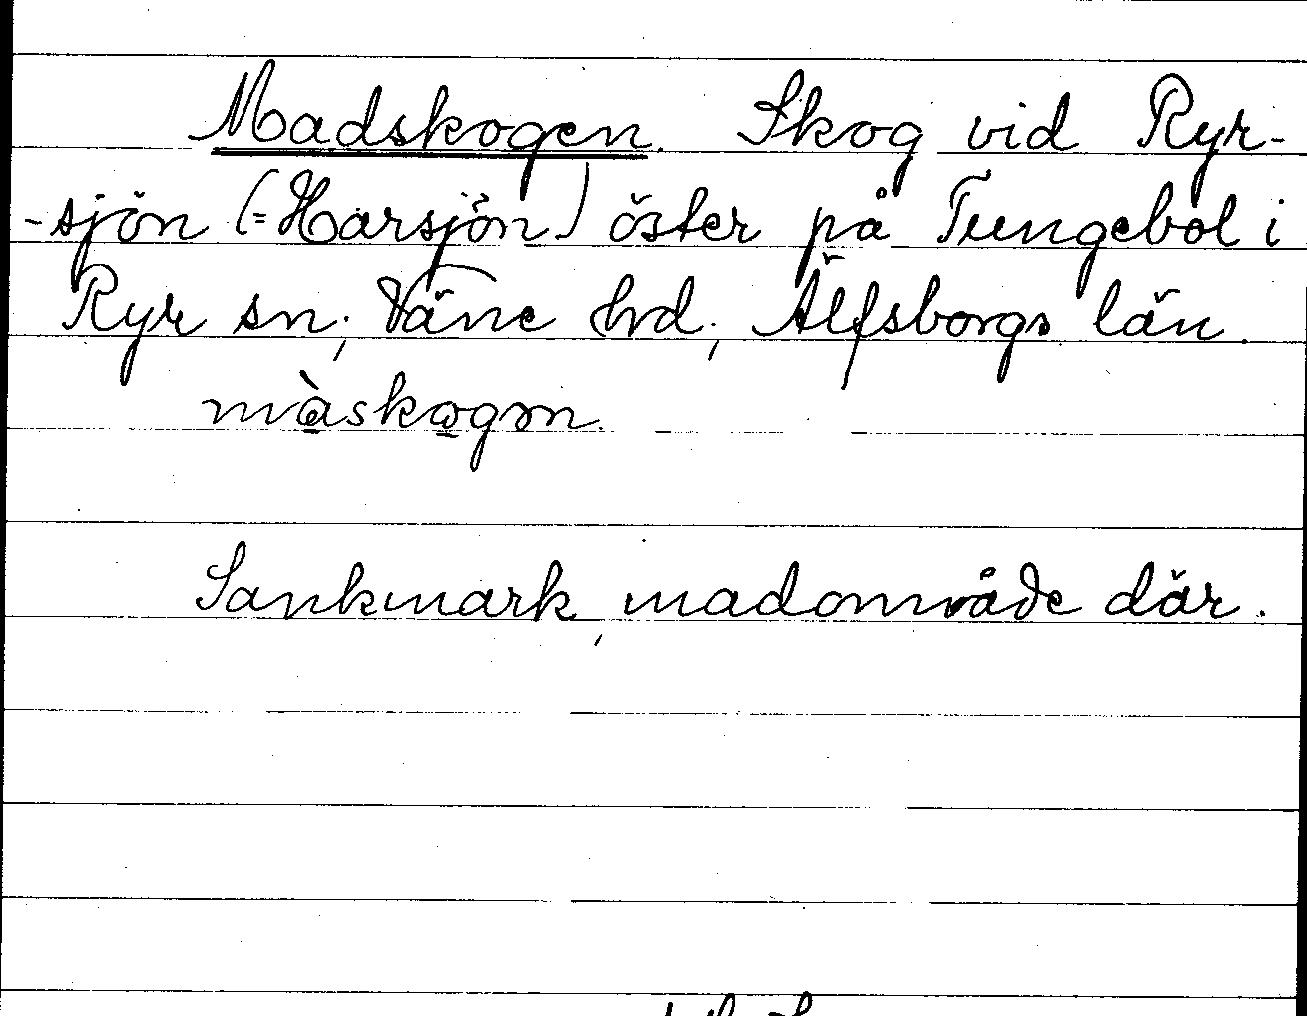 Madskogen. Skog vid Ryr-
-sjön (=Harsjön) öster på Tungebol i
Ryr sn, Väne hrd, Älfsborgs län.
Sankmark, madområde där.